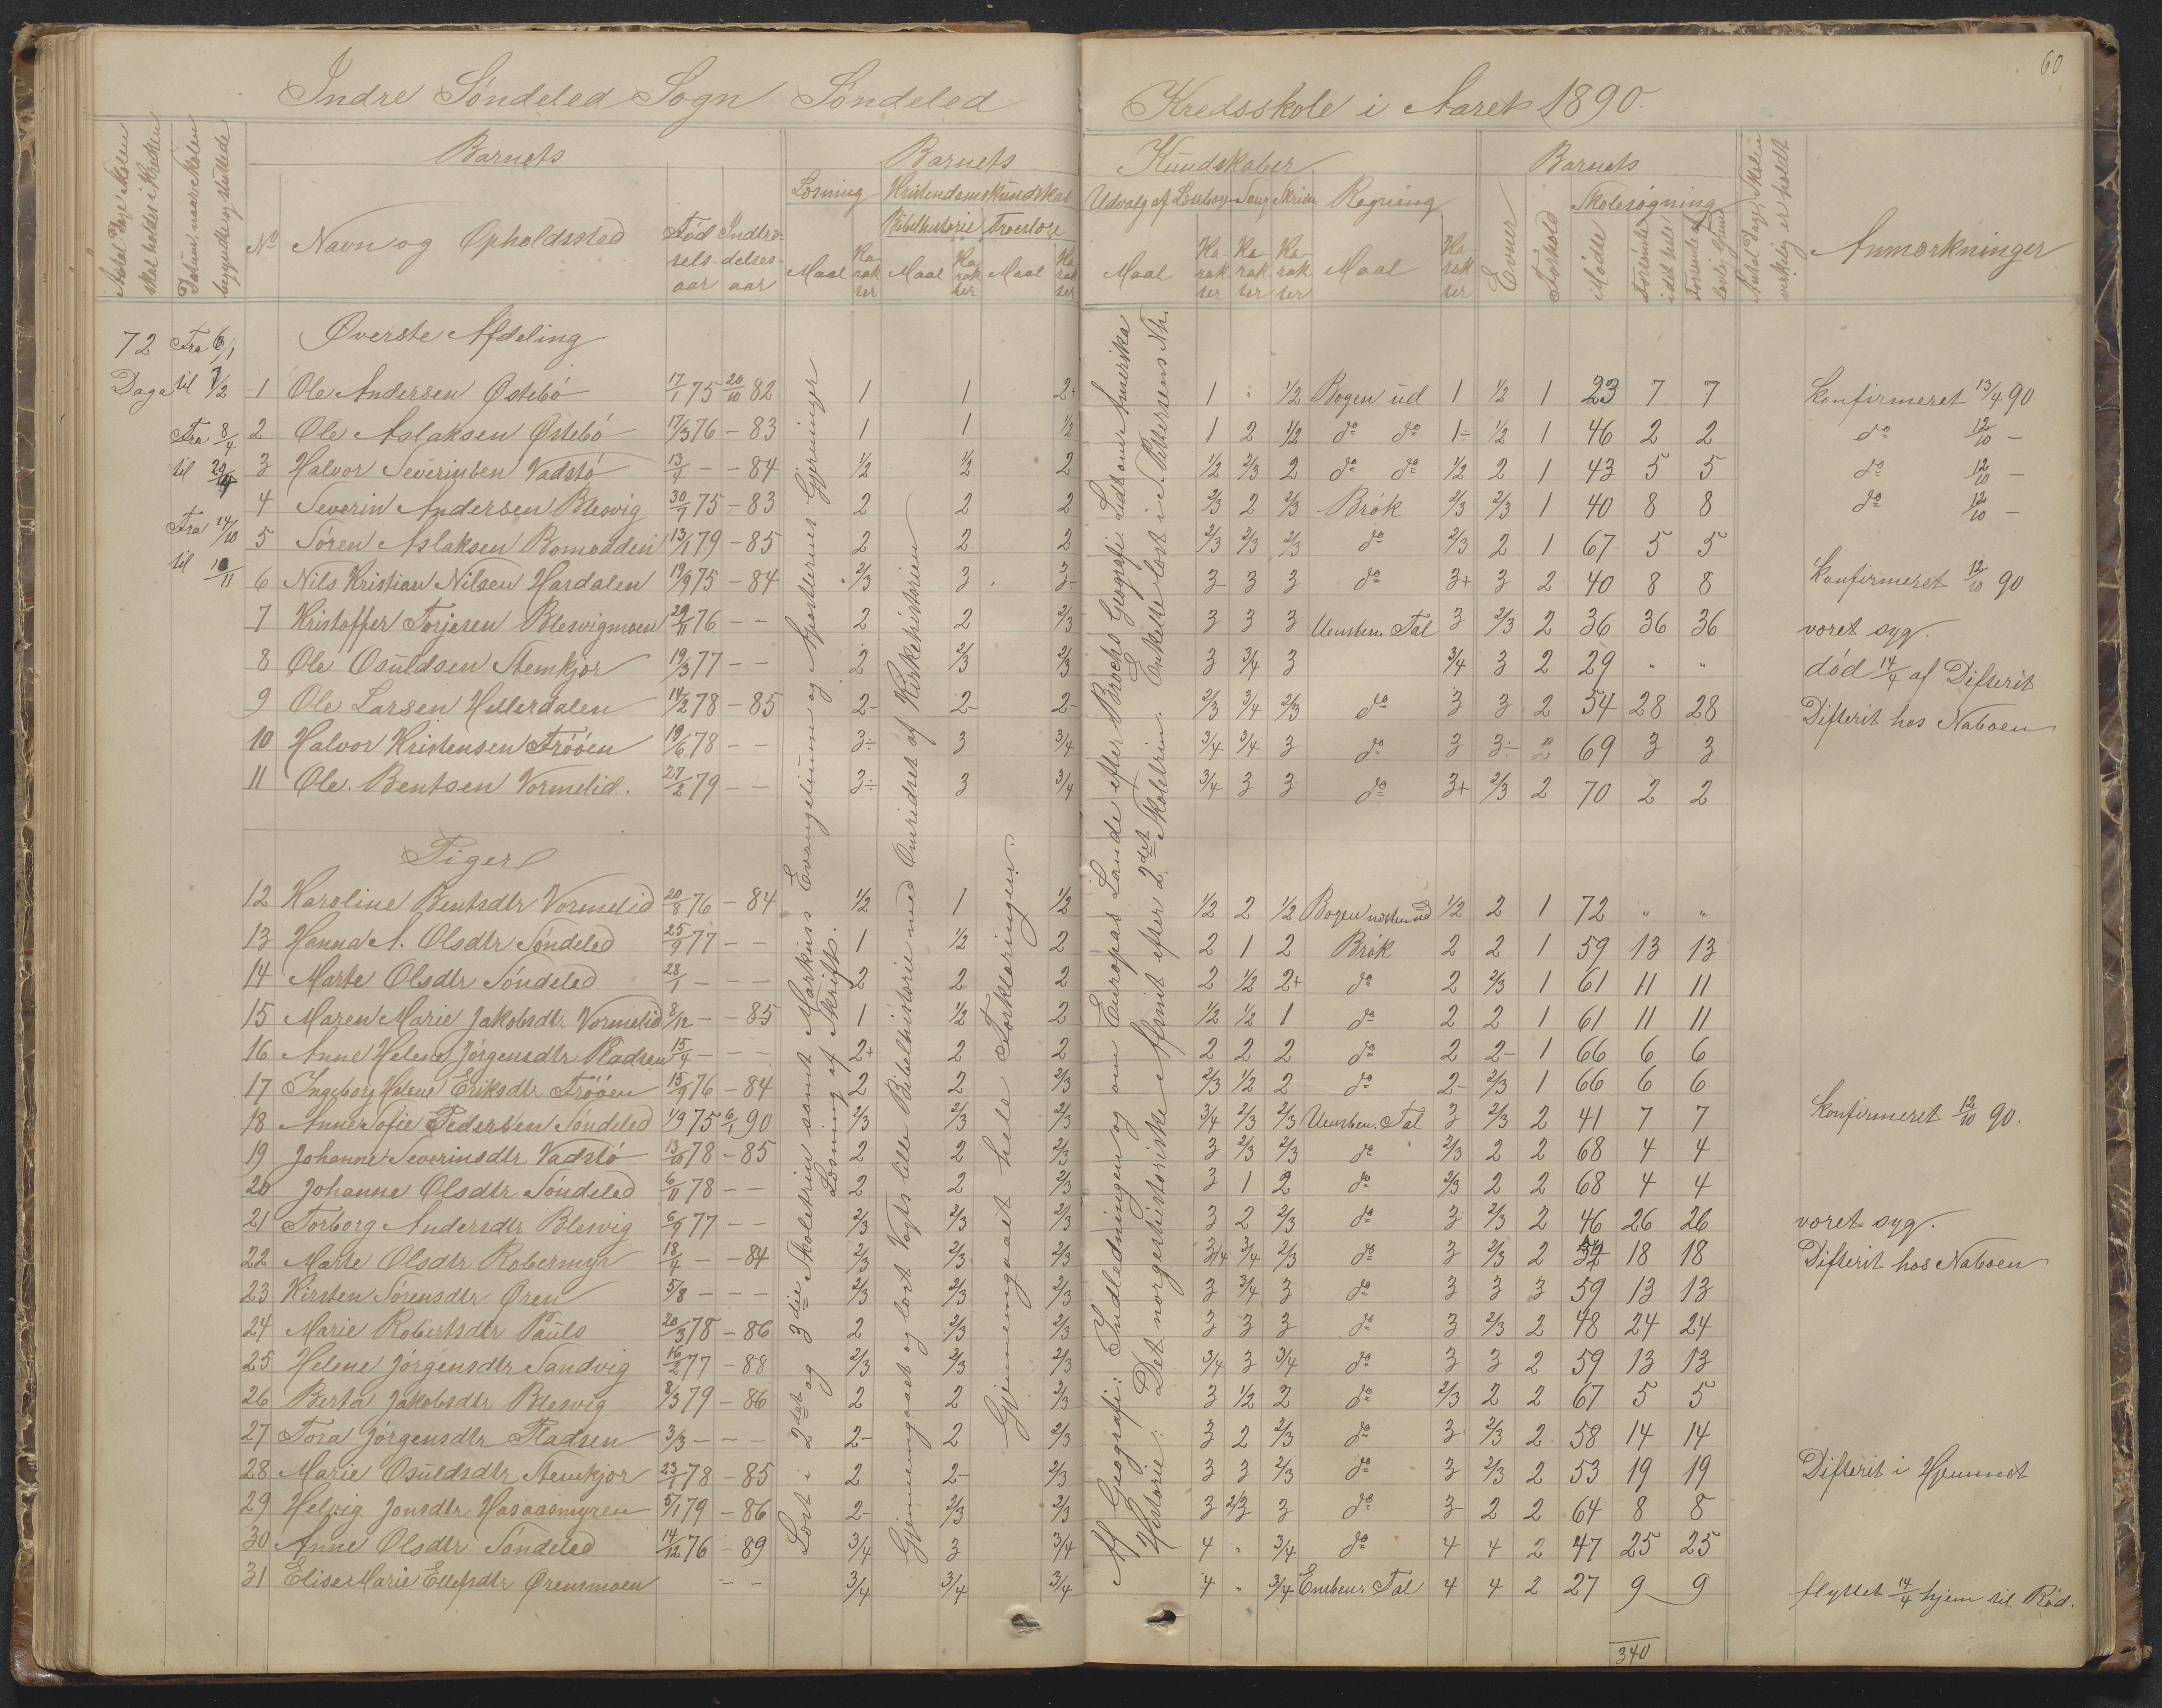 60
Indre Söndeled Sogn Söndeled Kredsskole i Aaret 1890.
Antal Dage Skolen skal holdes i Kredsen
Datum, naar Skolen begyndte og sluttede
Barnets Barnets Kundskaber Barnets
No Navn og Opholdssted Fødselsaar Indtrædelsesaar
Læsning Kristendomskundskab Udvalg af Læsebogen Sang Skrivn Regning Skolesøgning
Bibelhistorie Troeslære
Maal Karakter Maal Karakter Maal Karakter Maal Karakter Karakter Karakter Maal Karakter Evner Forhold Mødte Forsømte i det hele Forsømte af lovlig Grund
Antal Dage, Skolen virkelig er holdt
Anmærkninger
72 Dage
Fra 6/1
til 7/2
Fra 8/4
til 22/4
Fra 14/10
til 10/11
Øverste Afdeling
1 Ole Andersen Østebö 17/1 75 20/10 82 1 1 2+ 1 " 1/2 Bogen ud 1 1/2 1 23 7 7 Konfirmeret 13/4 90
2 Ole Aslaksen Østebö 17/3 76 – 83 1 1 1/2 1 2 1/2 do do 1÷ 1/2 1 46 2 2 do 12/10 –
3 Halvor Severinsen Vadstö 13/4 – – 84 1/2 1/2 2 1/2 2/3 2 do do 1/2 2 1 43 5 5 do 12/10 –
4 Severin Andersen Blesvig 30/7 75 – 83 2 2 2 2/3 2 2/3 Brök 2/3 2/3 1 40 8 8 do 12/10 –
5 Sören Aslaksen Bomodden 13/1 79 – 85 2 2 2 2/3 2/3 2/3 do 2/3 2 1 67 5 5
6 Nils Kristian Nilsen Hardalen 19/9 75 – 84 2/3 3 3÷ 3 3 3 do 3+ 3 2 40 8 8 Konfirmeret 12/10 90
7 Kristoffer Torjesen Blesvigmoen 29/11 76 – – 2 2 2/3 3 3 3 Uensben. Tal 3 2/3 2 36 36 36 været syg.
8 Ole Osuldsen Stemkjær 19/3 77 – – 2 2/3 2/3 3 3/4 3 3/4 3 2 29 " " död 14/4 af Difterit
9 Ole Larsen Hellerdalen 14/2 78 – 85 2– 2– 2– 2/3 3/4 2/3 do 3 3 2 54 28 28 Difterit hos Naboen
10 Halvor Kristensen Tröóen 19/6 78 – – 3÷ 3 3/4 3/4 3/4 3 do 3 3÷ 2 69 3 3
11 Ole Bentsen Vormelid. 27/2 79 – – 3÷ 3 3/4 3/4 3 3 do 3+ 2/3 2 70 2 2
Piger
12 Karoline Bentsdtr Vormelid 20/8 76 – 84 1/2 1 1/2 1/2 2 1/2 Bogen næsten ud 1/2 2 1 72 " "
13 Hanna A. Olsdtr Söndeled 25/9 77 – – 1 1/2 2 2 1 2 Brök 2 2 1 59 13 13
14 Marte Olsdtr Söndeled 28/1 – – – 2 2 2 2 1/2 2+ do 2 2/3 1 61 11 11
15 Maren Marie Jakobsdtr Vormelid 8/12 – – 85 1 1/2 2 1/2 1/2 1 do 2 2 1 61 11 11
16 Anne Helene Jörgensdtr Pladsen 15/4 – – – 2+ 2 2 2 2 2 do 2 2– 1 66 6 6
17 Ingeborg Helene Eriksdtr Tröóen 15/9 76 – 84 2 2 2/3 2/3 1/2 2 do 2– 2/3 1 66 6 6
18 Anne Sofie Pedersen Söndeled 1/9 75 6/1 90 2/3 2/3 2/3 3/4 2/3 2/3 Uensben. Tal 3 2/3 2 41 7 7 Konfirmeret 12/10 90.
19 Johanne Severinsdtr Vadstö 13/10 78 – 85 2 2 2/3 3 2/3 2/3 do 2/3 2 2 68 4 4
20 Johanne Olsdtr Söndeled 6/11 78 – – 2 2 2/3 3 1 2 do 2/3 2 2 68 4 4
21 Torborg Andersdtr Blesvig 6/9 77 – – 2/3 2/3 2/3 3 2 2/3 do 3 2/3 2 46 26 26 været syg.
22 Marte Olsdtr Robermyr 18/4 – – 84 2/3 2/3 2/3 3/4 3/4 2/3 do 3 2/3 2 54 18 18 Difterit hos Naboen
23 Kirsten Sörensdtr Ören 5/8 – – – 2/3 2/3 2/3 3 3/4 3 do 3 3 3 59 13 13
24 Marie Robertsdtr Pauls 20/3 78 – 86 2 2/3 2/3 3 3 3 do 3 2/3 2 48 24 24
25 Helene Jörgensdtr Sandvig 16/2 77 – 88 2/3 2/3 2/3 3/4 3 3/4 do 3 3 2 59 13 13
26 Berta Jakobsdtr Blesvig 8/3 79 – 86 2 2 2/3 3 1/2 2 do 2/3 2 2 67 5 5
27 Tora Jörgensdtr Pladsen 3/3 – – – 2– 2 2/3 3 2 2/3 do 3 2/3 2 58 14 14
28 Marie Osuldsdtr Stemkjær 23/1 78 – 85 2 2– 2/3 3 3 2/3 do 3 2/3 2 53 19 19 Difterit i Hjemmet
29 Helvig Jonsdtr Hasaasmyren 5/1 79 – 86 2– 2/3 2/3 3 2/3 3 do 3 2 2 64 8 8
30 Anne Olsdtr Söndeled 14/12 76 – 89 3/4 3 3/4 4 " 3/4 do 4 4 2 47 25 25
31 Elise Marie Ellefsdtr Örensmoen – – 3/4 3/4 3/4 4 " 3/4 Ensben. Tal 4 4 2 27 9 9 flyttet 14/4 hjem til Röd.
340
Læst i 2det og 3die Skoletrin samt Markus's Evangelium og Apostlernes Gjerninger
Læsning af Skrift.
Gjennemgaaet og læst Vogts lille Bibelhistorie med Omridset af Kirkehistorien
Gjennemgaaet hele Forklaringen.
Af Geografi: Indledningen og om Europas Lande efter Brochs Geografi. Lidt om Amerika
Historie: Det norgeshistoriske Afsnit efter 2det Skoletrin. Enkelte læst i S. Petersens Nh.